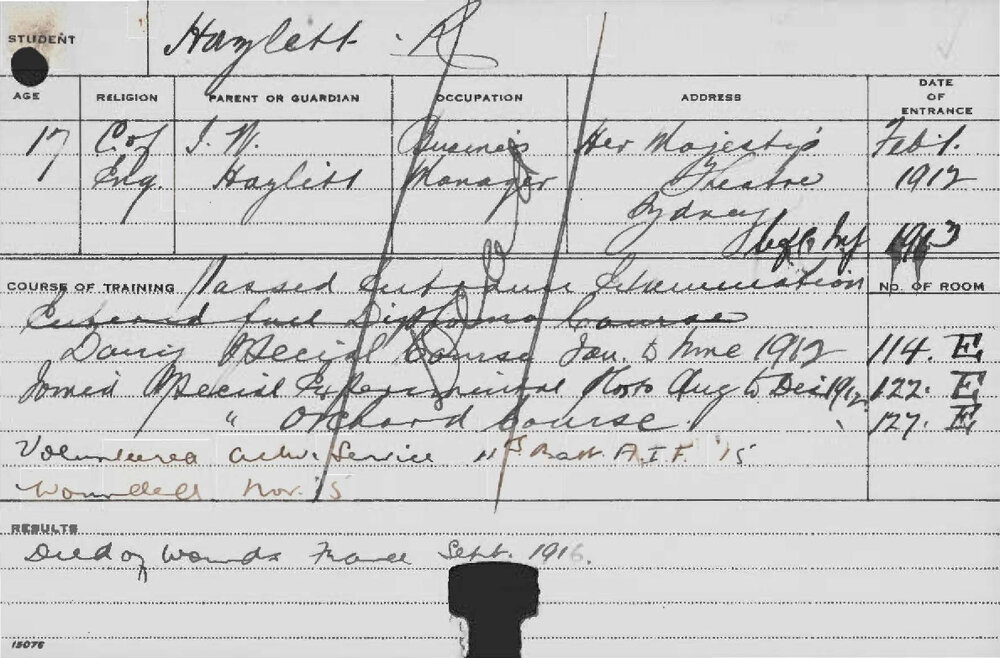 STUDENT Haylett. R
AGE RELIGION PARENT OR GUARDIAN OCCUPATION ADDRESS DATE OF ENTRANCE
17 C. of J. W. Business Her Majesty's Feb 1.
Eng. Haylett Manager Theatre 1912
Sydney
1913
COURSE OF TRAINING Passed Entrance Examination NO. OF ROOM
Entered full Diploma Course
Dairy Special Course Jan. to June 1912 114. E
Joined Special Experimental Plots Aug to Dec 1912 122. E
" Orchard Course. 127. E
Volunteered Active Service Batt. A.I.F. '15
Wounded Nov. '15
RESULTS
Died of Wounds France Sept. 1916.
15076